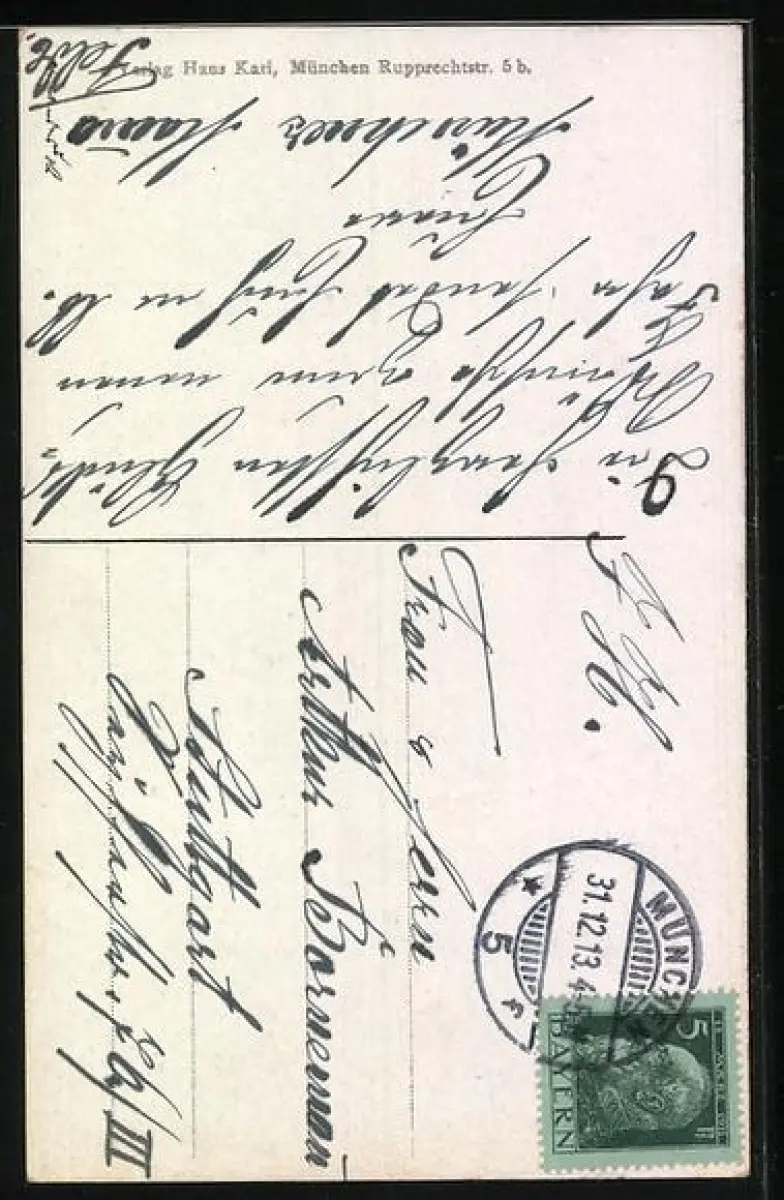 Verlag Hans Kari, München Rupprechtstr. 5 b.
Die herzlichsten Glück-
wünsche zum neuen
Jahre sendet Euch u. A.
Euere
Münchner Maria
Felix
F. H.
Frau & Herrn
Arthur Borneman
Stuttgart
/III
MÜNCHEN
31.12.13.4-5
5
5
BAYERN